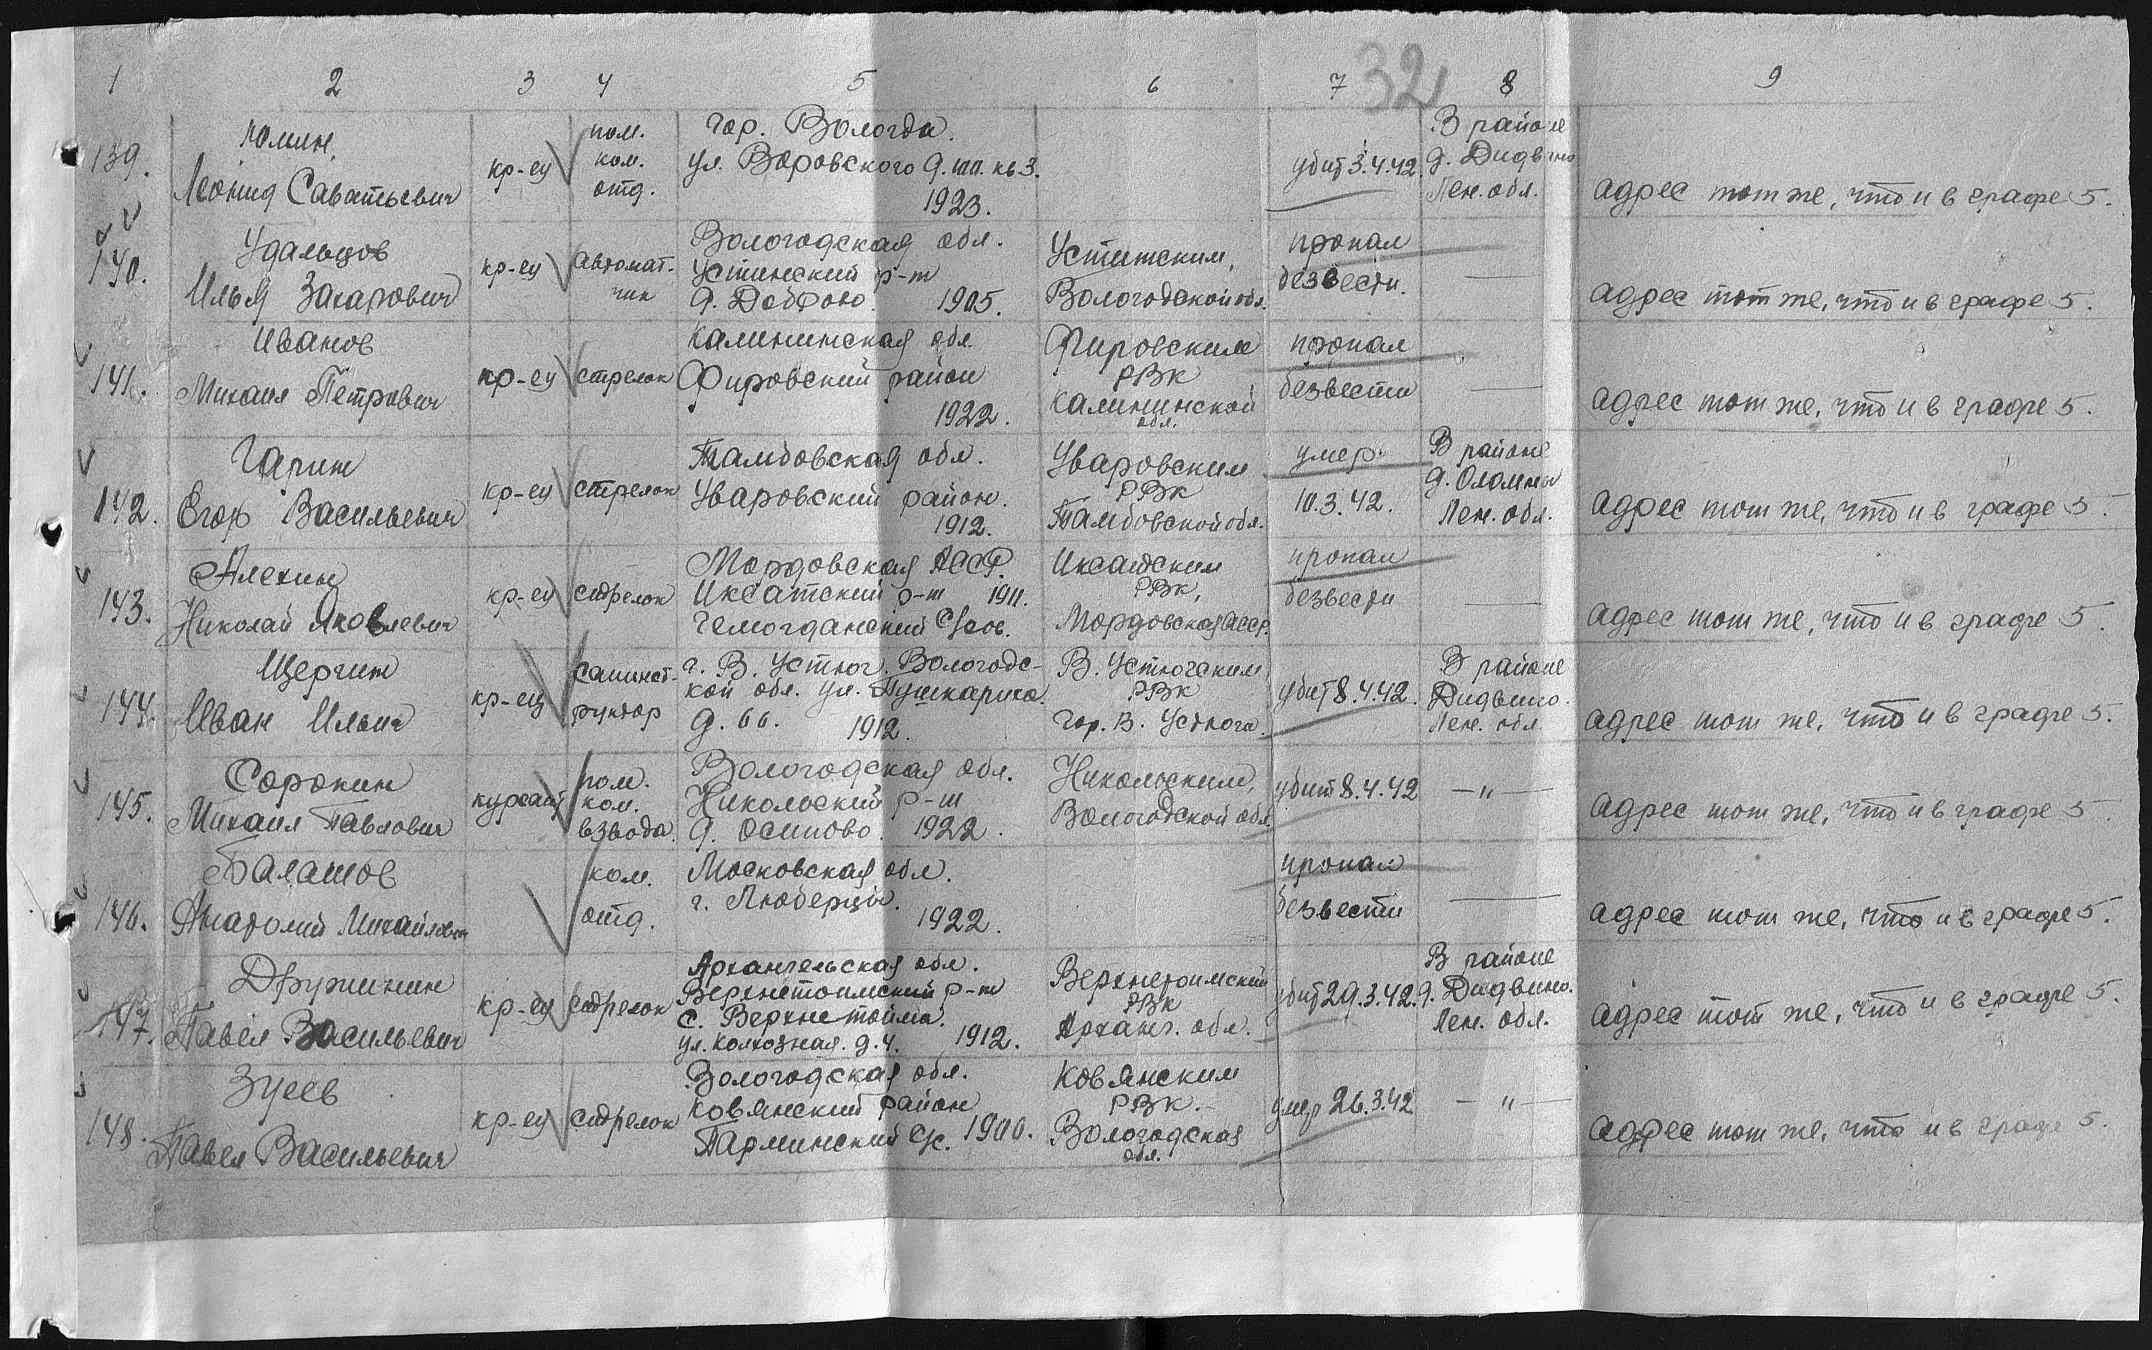 32
1 2 3 4 5 6 7 8 9
139.
Леонид Саватьевич
кр-ец
пом.
ком.
отд.
гор. Вологда.
ул. Воровского кв 3.
1923.
убит 3.4.42.
В районе
д. Дидвино
Лен. обл.
адрес тот же, что и в графе 5.
140.
Удальцов
Илья Захарович
кр-ец
автомат-
чик
Вологодская обл.
р-н
д.
1905.
Вологодской обл.
пропал
безвести.
—
адрес тот же, что и в графе 5.
141.
Иванов
Михаил Петрович
кр-ец
стрелок
Калининская обл.
Фировский район
1922.
Фировским
РВК
Калининской
обл.
пропал
безвести
—
адрес тот же, что и в графе 5.
142.
Гарин
Егор Васильевич
кр-ец
стрелок
Тамбовская обл.
Уваровский район.
1912.
Уваровским
РВК
Тамбовской обл.
умер
10.3.42.
В районе
д.
Лен. обл.
адрес тот же, что и в графе 5.
143.
Алехин
Николай Яковлевич
кр-ец
стрелок
Мордовская АССР.
р-н 1911.
РВК,
Мордовская АССР.
пропал
безвести
—
адрес тот же, что и в графе 5.
144.
Иван Ильич
кр-ец
санинст-
руктор
г. В. Устюг. Вологодс-
кой обл. ул.
д. 66. 1912.
В. Устюгским
РВК
гор. В. Устюга.
убит 8.4.42.
В районе
Дидвино.
Лен. обл.
адрес тот же, что и в графе 5.
145.
Сорокин
Михаил Павлович
курсант
пом.
ком.
взвода.
Вологодская обл.
Никольский р-н
д. Осиново. 1922.
Никольским,
Вологодской обл.
убит 8.4.42
—"—
адрес тот же, что и в графе 5.
146.
Балашов
Анатолий Михайлович
ком.
отд.
Московская обл.
г. Люберцы.
1922.
пропал
безвести
—
адрес тот же, что и в графе 5.
147.
Дружинин
Павел Васильевич
кр-ец
стрелок
Архангельская обл.
Верхнетоимский р-н
с. Верхне тойма.
ул. Колхозная. д. 4. 1912.
Верхнетоимский
РВК
Арханг. обл.
убит 29.3.42.
В районе
д. Дидвино.
Лен. обл.
адрес тот же, что и в графе 5.
148.
Зуев
Павел Васильевич
кр-ец
стрелок
Вологодская обл.
Ковянский район
1900.
Ковянским
РВК.
Вологодская
обл.
умер 26.3.42
—"—
адрес тот же, что и в графе 5.